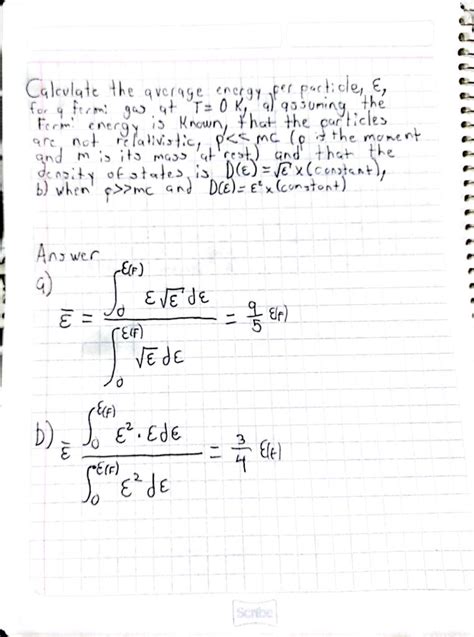 Calculate the average energy per particle, ε,
for a fermi gas at T = 0 K, a) assuming the
Fermi energy is Known, that the particles
are not relativistic, p<<mc (p is the moment
and m is its mass at rest) and that the
density of states is D(ε) = √ε x (constant),
b) when p>>mc and D(ε) = ε² x (constant)
Answer
a) ε̄ = ∫₀^ε(F) ε√ε dε / ∫₀^ε(F) √ε dε = 9/5 ε(F)
b) ε̄ = ∫₀^ε(F) ε² · ε dε / ∫₀^ε(F) ε² dε = 3/4 ε(F)
Scribe